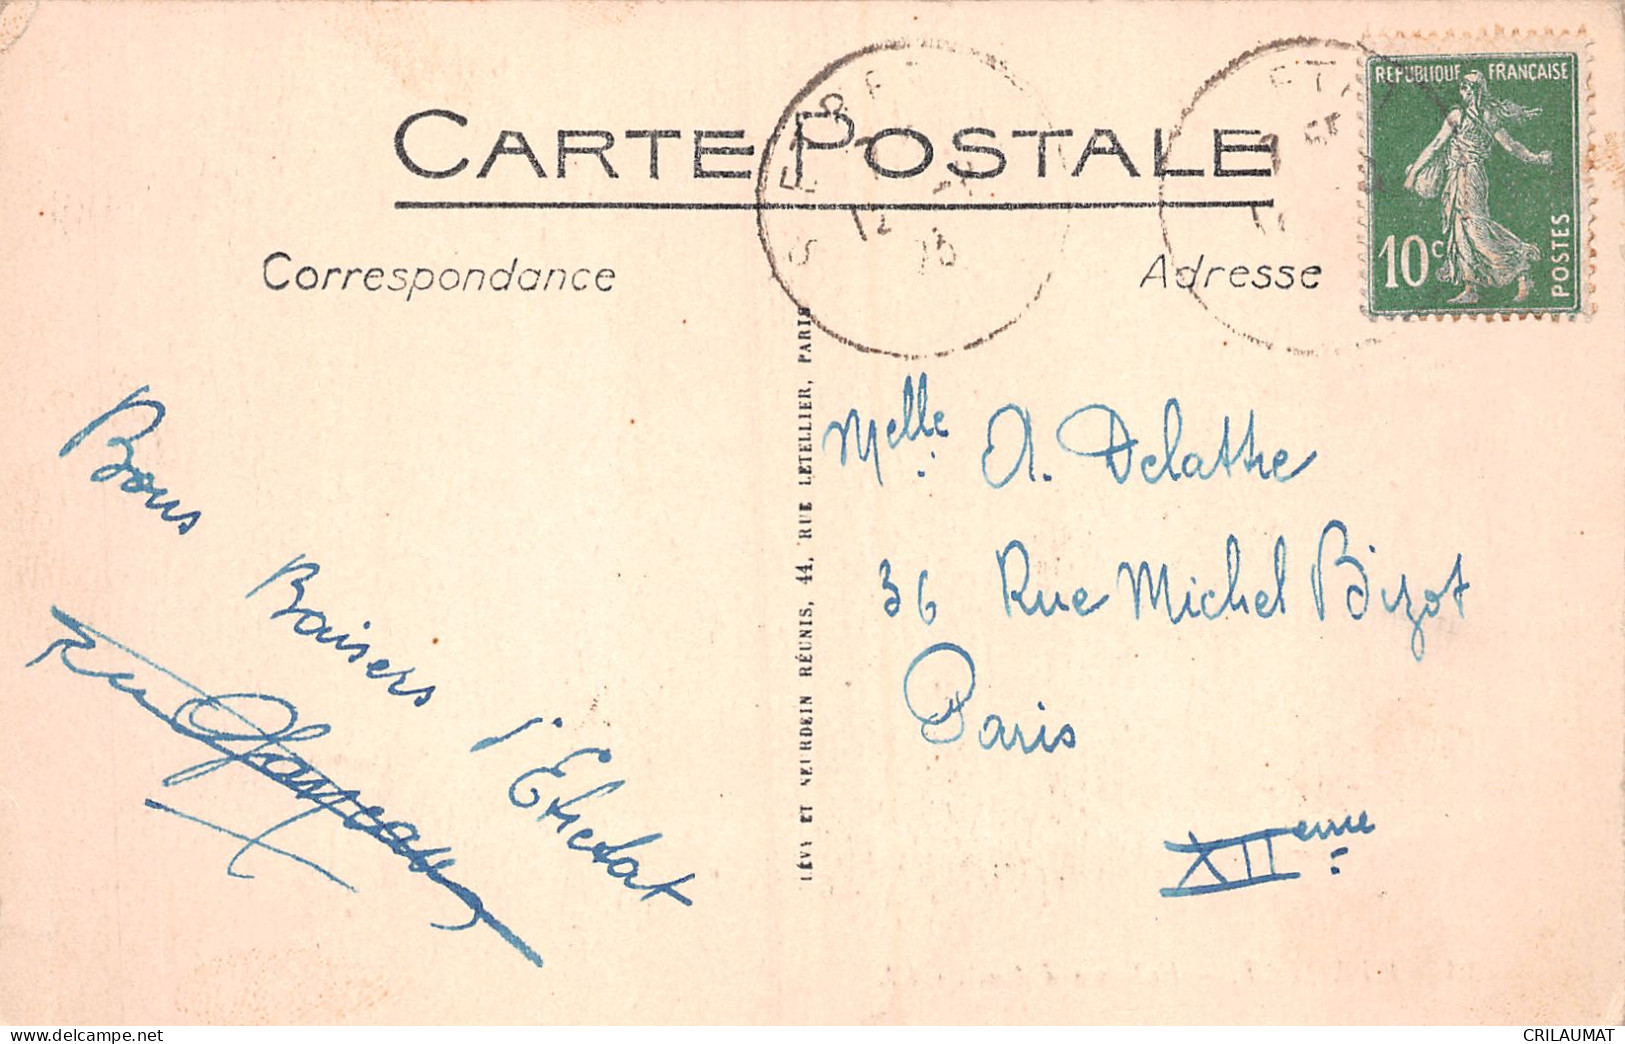 CARTE POSTALE
Correspondance
Adresse
RÉPUBLIQUE FRANÇAISE
10c
POSTES
LÉVY ET NEURDEIN RÉUNIS, 44, RUE LETELLIER, PARIS
Bons
Baisers
d'Etretat
Melle A. Delattre
36 Rue Michel Bizot
Paris
XIIeme
delcampe.net
CRILAUMAT